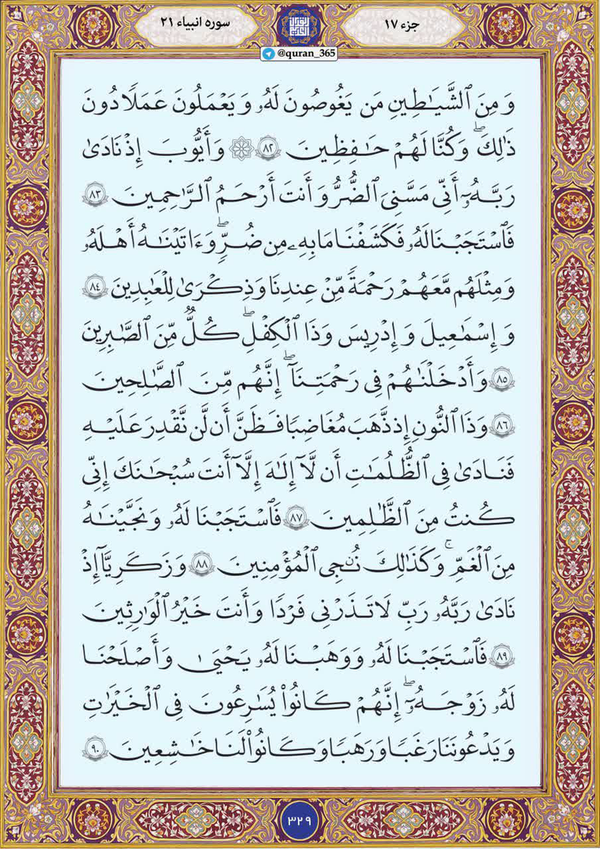 جزء ۱۷
سوره انبیاء ۲۱
@quran_365
وَ مِنَ ٱلشَّيَـٰطِينِ مَن يَغُوصُونَ لَهُۥ وَ يَعْمَلُونَ عَمَلًا دُونَ
ذَٰلِكَۖ وَ كُنَّا لَهُمْ حَـٰفِظِينَ ۸۲ ۞ وَ أَيُّوبَ إِذْ نَادَىٰ
رَبَّهُۥٓ أَنِّى مَسَّنِىَ ٱلضُّرُّ وَ أَنتَ أَرْحَمُ ٱلرَّٰحِمِينَ ۸۳
فَٱسْتَجَبْنَا لَهُۥ فَكَشَفْنَا مَا بِهِۦ مِن ضُرٍّۖ وَ ءَاتَيْنَـٰهُ أَهْلَهُۥ
وَ مِثْلَهُم مَّعَهُمْ رَحْمَةً مِّنْ عِندِنَا وَ ذِكْرَىٰ لِلْعَـٰبِدِينَ ۸۴
وَ إِسْمَـٰعِيلَ وَ إِدْرِيسَ وَ ذَا ٱلْكِفْلِۖ كُلٌّ مِّنَ ٱلصَّـٰبِرِينَ
۸۵ وَ أَدْخَلْنَـٰهُمْ فِى رَحْمَتِنَآۖ إِنَّهُم مِّنَ ٱلصَّـٰلِحِينَ
۸۶ وَ ذَا ٱلنُّونِ إِذ ذَّهَبَ مُغَـٰضِبًا فَظَنَّ أَن لَّن نَّقْدِرَ عَلَيْهِ
فَنَادَىٰ فِى ٱلظُّلُمَـٰتِ أَن لَّآ إِلَـٰهَ إِلَّآ أَنتَ سُبْحَـٰنَكَ إِنِّى
كُنتُ مِنَ ٱلظَّـٰلِمِينَ ۸۷ فَٱسْتَجَبْنَا لَهُۥ وَ نَجَّيْنَـٰهُ
مِنَ ٱلْغَمِّۚ وَ كَذَٰلِكَ نُـۨجِى ٱلْمُؤْمِنِينَ ۸۸ وَ زَكَرِيَّآ إِذْ
نَادَىٰ رَبَّهُۥ رَبِّ لَا تَذَرْنِى فَرْدًا وَ أَنتَ خَيْرُ ٱلْوَٰرِثِينَ
۸۹ فَٱسْتَجَبْنَا لَهُۥ وَ وَهَبْنَا لَهُۥ يَحْيَىٰ وَ أَصْلَحْنَا
لَهُۥ زَوْجَهُۥٓۚ إِنَّهُمْ كَانُوا۟ يُسَـٰرِعُونَ فِى ٱلْخَيْرَٰتِ
وَ يَدْعُونَنَا رَغَبًا وَ رَهَبًا وَ كَانُوا۟ لَنَا خَـٰشِعِينَ ۹۰
۳۲۹